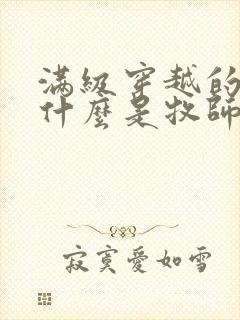 滿級穿越的
什麼是牧師
寂寞愛如雪